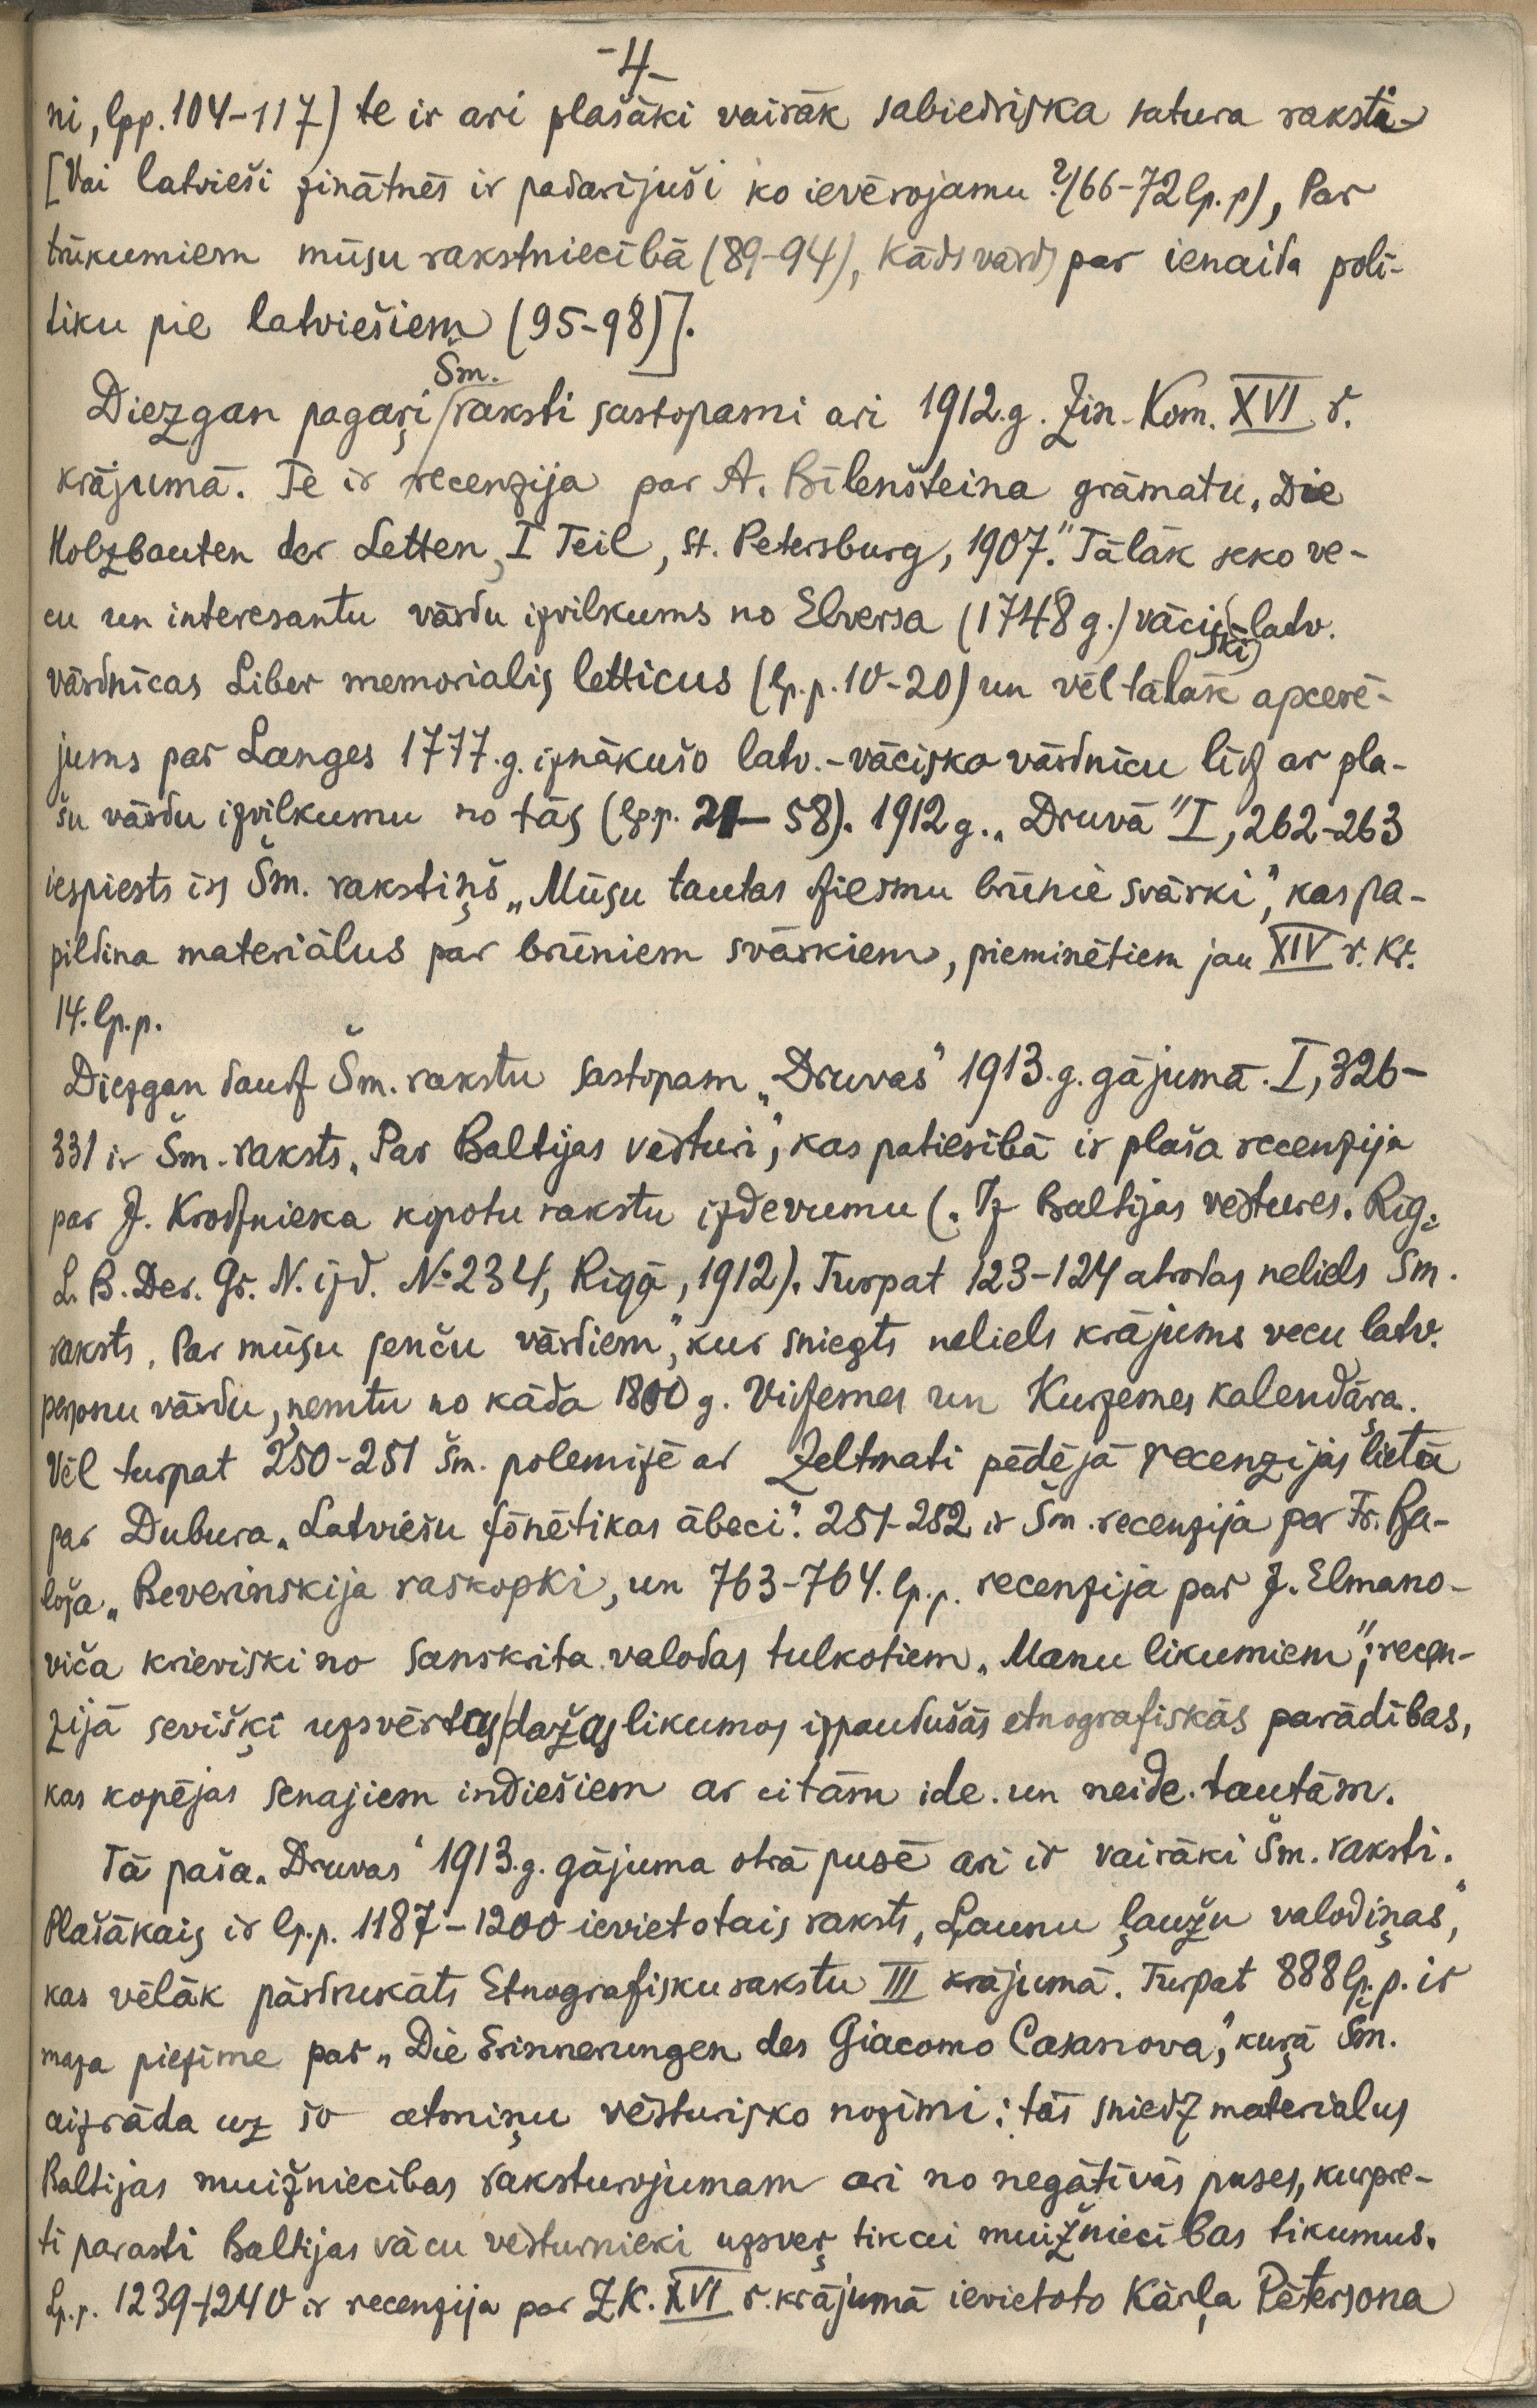 -4-
ni, lpp. 104-117) te ir ari plašāki vairāk sabiedriska satura raksti
[Vai latvieši zinātnēs ir padarījuši ko ievērojamu? (66-72 lp.p), Par
trūkumiem mūsu rakstniecībā (89-94), Kāds vārds par ienaida poli-
tiku pie latviešiem (95-98)].
Diezgan pagaŗi Šm. raksti sastopami ari 1912.g. Zin. Kom. XVI r.
krājumā. Te ir recenzija par A. Bīlenšteina grāmatu „Die
Holzbauten der Letten, I Teil, St. Petersburg, 1907." Tālāk seko ve-
cu un interesantu vārdu izvilkums no Elversa (1748 g.) vāciski-latv.
vārdnīcas Liber memorialis letticus (lp.p. 10-20) un vēl tālāk apcerē-
jums par Langes 1777.g. iznākušo latv.-vācisko vārdnīcu līdz ar pla-
šu vārdu izvilkumu no tās (lpp. 21-58). 1912 g. „Druvā" I, 262-263
iespiests ir Šm. rakstiņš „Mūsu tautas dziesmu brūnie svārki", kas pa-
pildina materiālus par brūniem svārkiem, pieminētiem jau XIV r. kr.
14. lp.p.
Diezgan daudz Šm. rakstu sastopam „Druvas" 1913.g. gājumā. I, 326-
331 ir Šm. raksts „Par Baltijas vēsturi", kas patiesībā ir plaša recenzija
par J. Krodznieka kopotu rakstu izdevumu („Iz Baltijas vēstures. Rīg.
L. B. Der. Gr. N. izd. № 234, Rīgā, 1912). Turpat 123-124 atrodas neliels Šm.
raksts „Par mūsu senču vārdiem", kur sniegts neliels krājums vecu latv.
personu vārdu, ņemtu no kāda 1800 g. Vidzemes un Kurzemes kalendāra.
Vēl turpat 250-251 Šm. polemizē ar Zeltmati pēdējā recenzijas lietā
par Dubura „Latviešu fōnētikas ābeci". 251-252 ir Šm. recenzija par Fr. Ba-
loža „Beverinskija raskopki, un 763-764. lp.p. recenzija par J. Elmano-
viča krieviski no sanskrita valodas tulkotiem „Manu likumiem"; recen-
zijā sevišķi uzsvērtas dažas likumos izpaudušās etnografiskās parādības,
kas kopējas senajiem indiešiem ar citām ide. un neide. tautām.
Tā paša „Druvas" 1913.g. gājuma otrā pusē ari ir vairāki Šm. raksti.
Plašākais ir lp.p. 1187-1200 ievietotais raksts „Ļaunu ļaužu valodiņas",
kas vēlāk pārdrukāts Etnografisku rakstu III krājumā. Turpat 888 lp.p. ir
maza piezīme par „Die Erinnerungen des Giacomo Casanova", kuŗā Šm.
aizrāda uz šo atmiņu vēsturisko nozīmi: tās sniedz materialus
Baltijas muižniecības raksturojumam ari no negātīvās puses, kurpre-
ti parasti Baltijas vācu vēsturnieki uzsveŗ tikai muižniecības tikumus.
Lp.p. 1239-1240 ir recenzija par ZK. XVI r. krājumā ievietoto Kārļa Pētersona